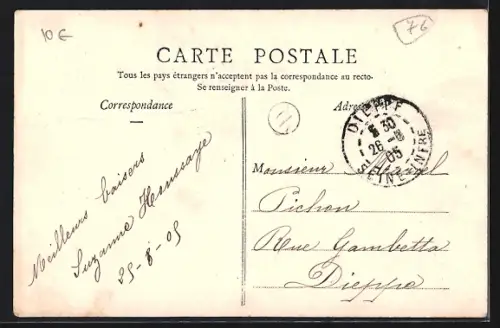 10 €
76
CARTE POSTALE
Tous les pays étrangers n'acceptent pas la correspondance au recto-
Se renseigner à la Poste.
Correspondance
Adresse
DIEPPE
8 30
26 -8
05
SEINE-INFRE
Meilleurs baisers
Suzanne
25-8-05
Monsieur Marcel
Pichon
Rue Gambetta
Dieppe